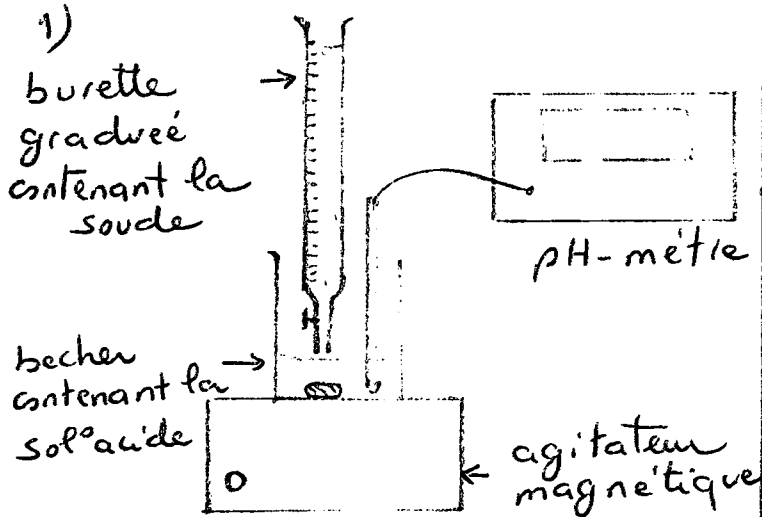 1)
burette
graduée
contenant la
soude
pH-mètre
becher
contenant la
sol° acide
agitateur
magnétique